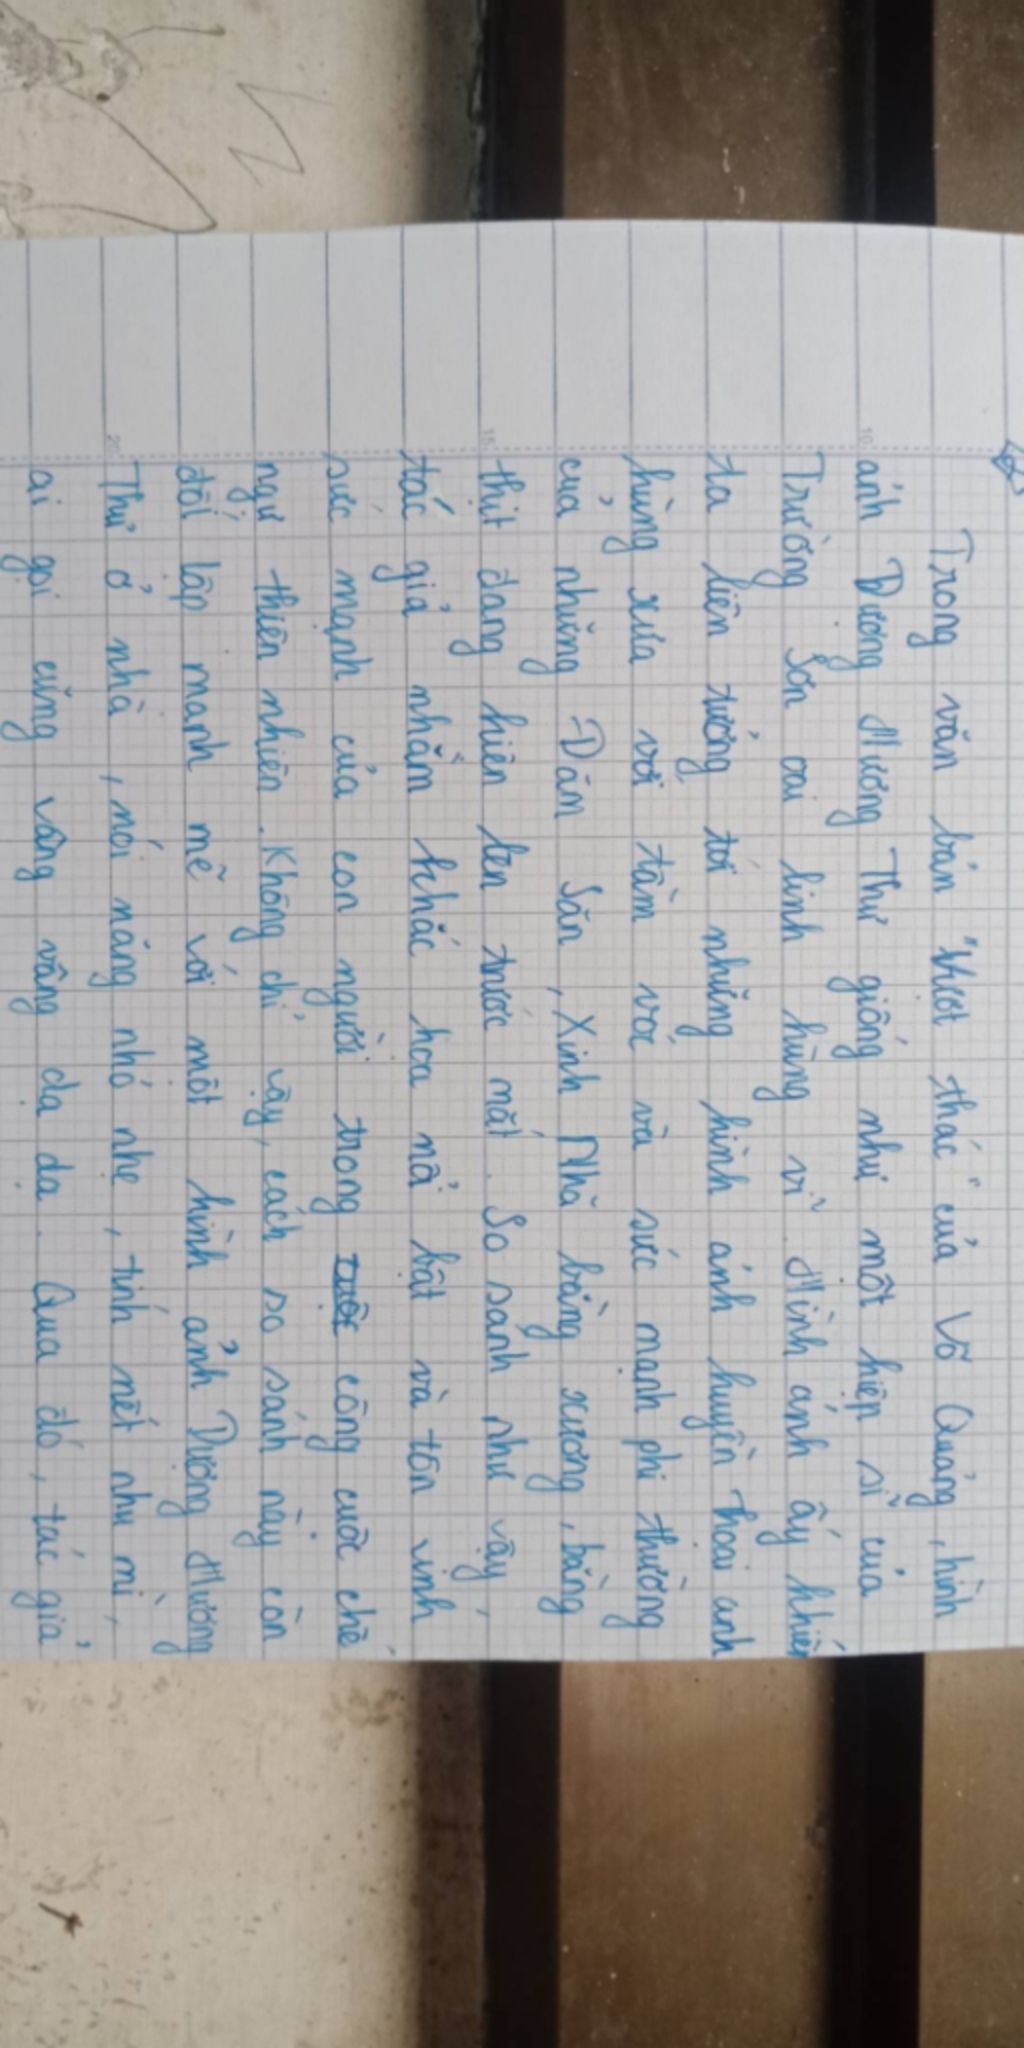 Trong văn bản "Vượt thác" của Võ Quảng, hình
ảnh Dượng Hương Thư giống như một hiệp sĩ của
Trường Sơn oai linh hùng vĩ. Hình ảnh ấy khiến
ta liên tưởng tới những hình ảnh huyền thoại anh
hùng xưa với tầm vóc và sức mạnh phi thường
của những Đăm Săn, Xinh Nhã bằng xương, bằng
thịt đang hiện lên trước mắt. So sánh như vậy,
tác giả nhằm khắc hoạ nổi bật và tôn vinh
sức mạnh của con người trong công cuộc chế
ngự thiên nhiên. Không chỉ vậy, cách so sánh này còn
đối lập mạnh mẽ với một hình ảnh Dượng Hương
Thư ở nhà, nói năng nhỏ nhẹ, tính nết nhu mì,
ai gọi cũng vâng vâng dạ dạ. Qua đó, tác giả
10
15
20